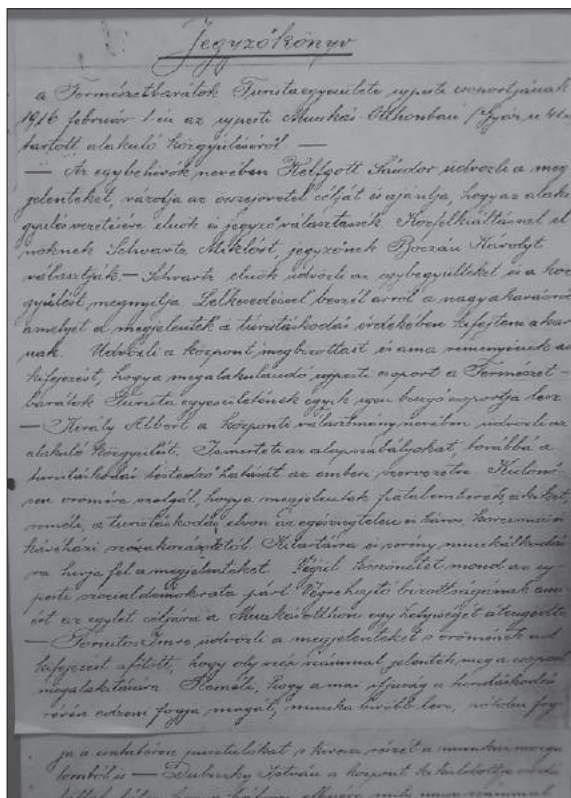 Jegyzőkönyv
a Természetbarátok Turistaegyesülete ujpesti csoportjának
1916 február 1-én az ujpesti Munkás-Otthonban (Gyár u 41
tartott alakuló közgyüléséről —
— Az egybehivók nevében Helfgott Sándor üdvözli a meg
jelenteket, vázolja az összejövetel célját és ajánlja, hogy az alak.
gyülés vezetésére elnök és jegyző választassék. Közfelkiáltással el
nöknek Schwartz Miklóst, jegyzőnek Boczán Károlyt
választják. — Schwartz elnök üdvözli az egybegyülteket és a köz
gyülést megnyitja. Lelkesedéssel beszél arról a nagy akarásról
amelyet a megjelentek a turistáskodás érdekében kifejteni akar
nak. Üdvözli a központ megbizottait és ama reményének ad
kifejezést, hogy a megalakulandó ujpesti csoport a Természet-
barátok Turista egyesületének egyik igen buzgó csoportja lesz
— Király Albert a központi választmány nevében üdvözli az
alakuló közgyülést. Ismerteti az alapszabályokat, továbbá a
turistáskodás testedző hatását az emberi szervezetre. Különö
sen örömére szolgál, hogy a megjelentek fiatalemberek, akiket,
reméli, a turistáskodás elvon az egészségtelen és káros korcsmai és
kávéházi szórakozásoktól. Kitartásra és serény munkálkodás
ra hivja fel a megjelenteket. Végül köszönetet mond az uj
pesti szociáldemokrata párt Végrehajtó bizottságának ami
ért az egylet céljára a Munkásotthon egy helyiségét átengedte.
— Imre üdvözli a megjelenteket s örömének ad
kifejezést afölött, hogy oly szép számmal jelentek meg a csoport
megalakitására. Reméli, hogy a mai ifjuság a turistáskodás
révén edzeni fogja magát, munka biróbb lesz, pótolni fog
ja a csatatéren
— Dubecky István a központ